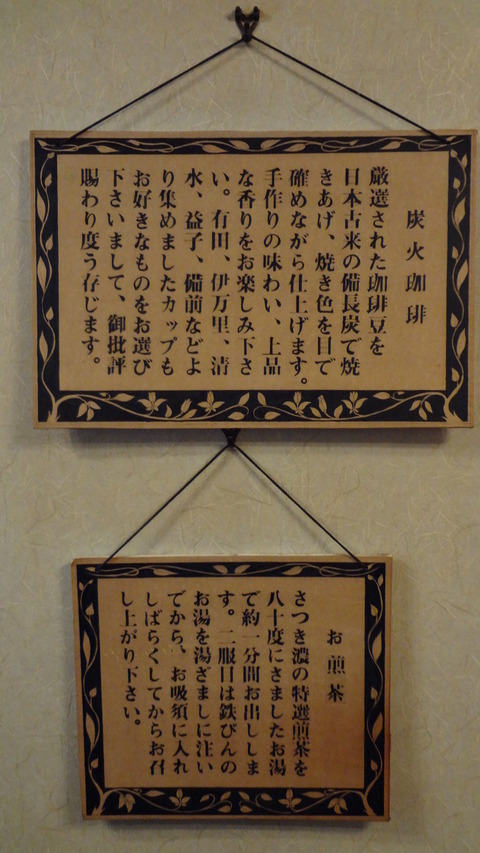 炭火珈琲
厳選された珈琲豆を
日本古来の備長炭で焼
きあげ、焼き色を目で
確めながら仕上げます。
手作りの味わい、上品
な香りをお楽しみ下さ
い。有田、伊万里、清
水、益子、備前などよ
り集めましたカップも
お好きなものをお選び
下さいまして、御批評
賜わり度う存じます。
お煎茶
さつき濃の特選煎茶を
八十度にさましたお湯
で約一分間お出ししま
す。二服目は鉄びんの
お湯を湯ざましに注い
でから、お吸須に入れ
しばらくしてからお召
し上がり下さい。